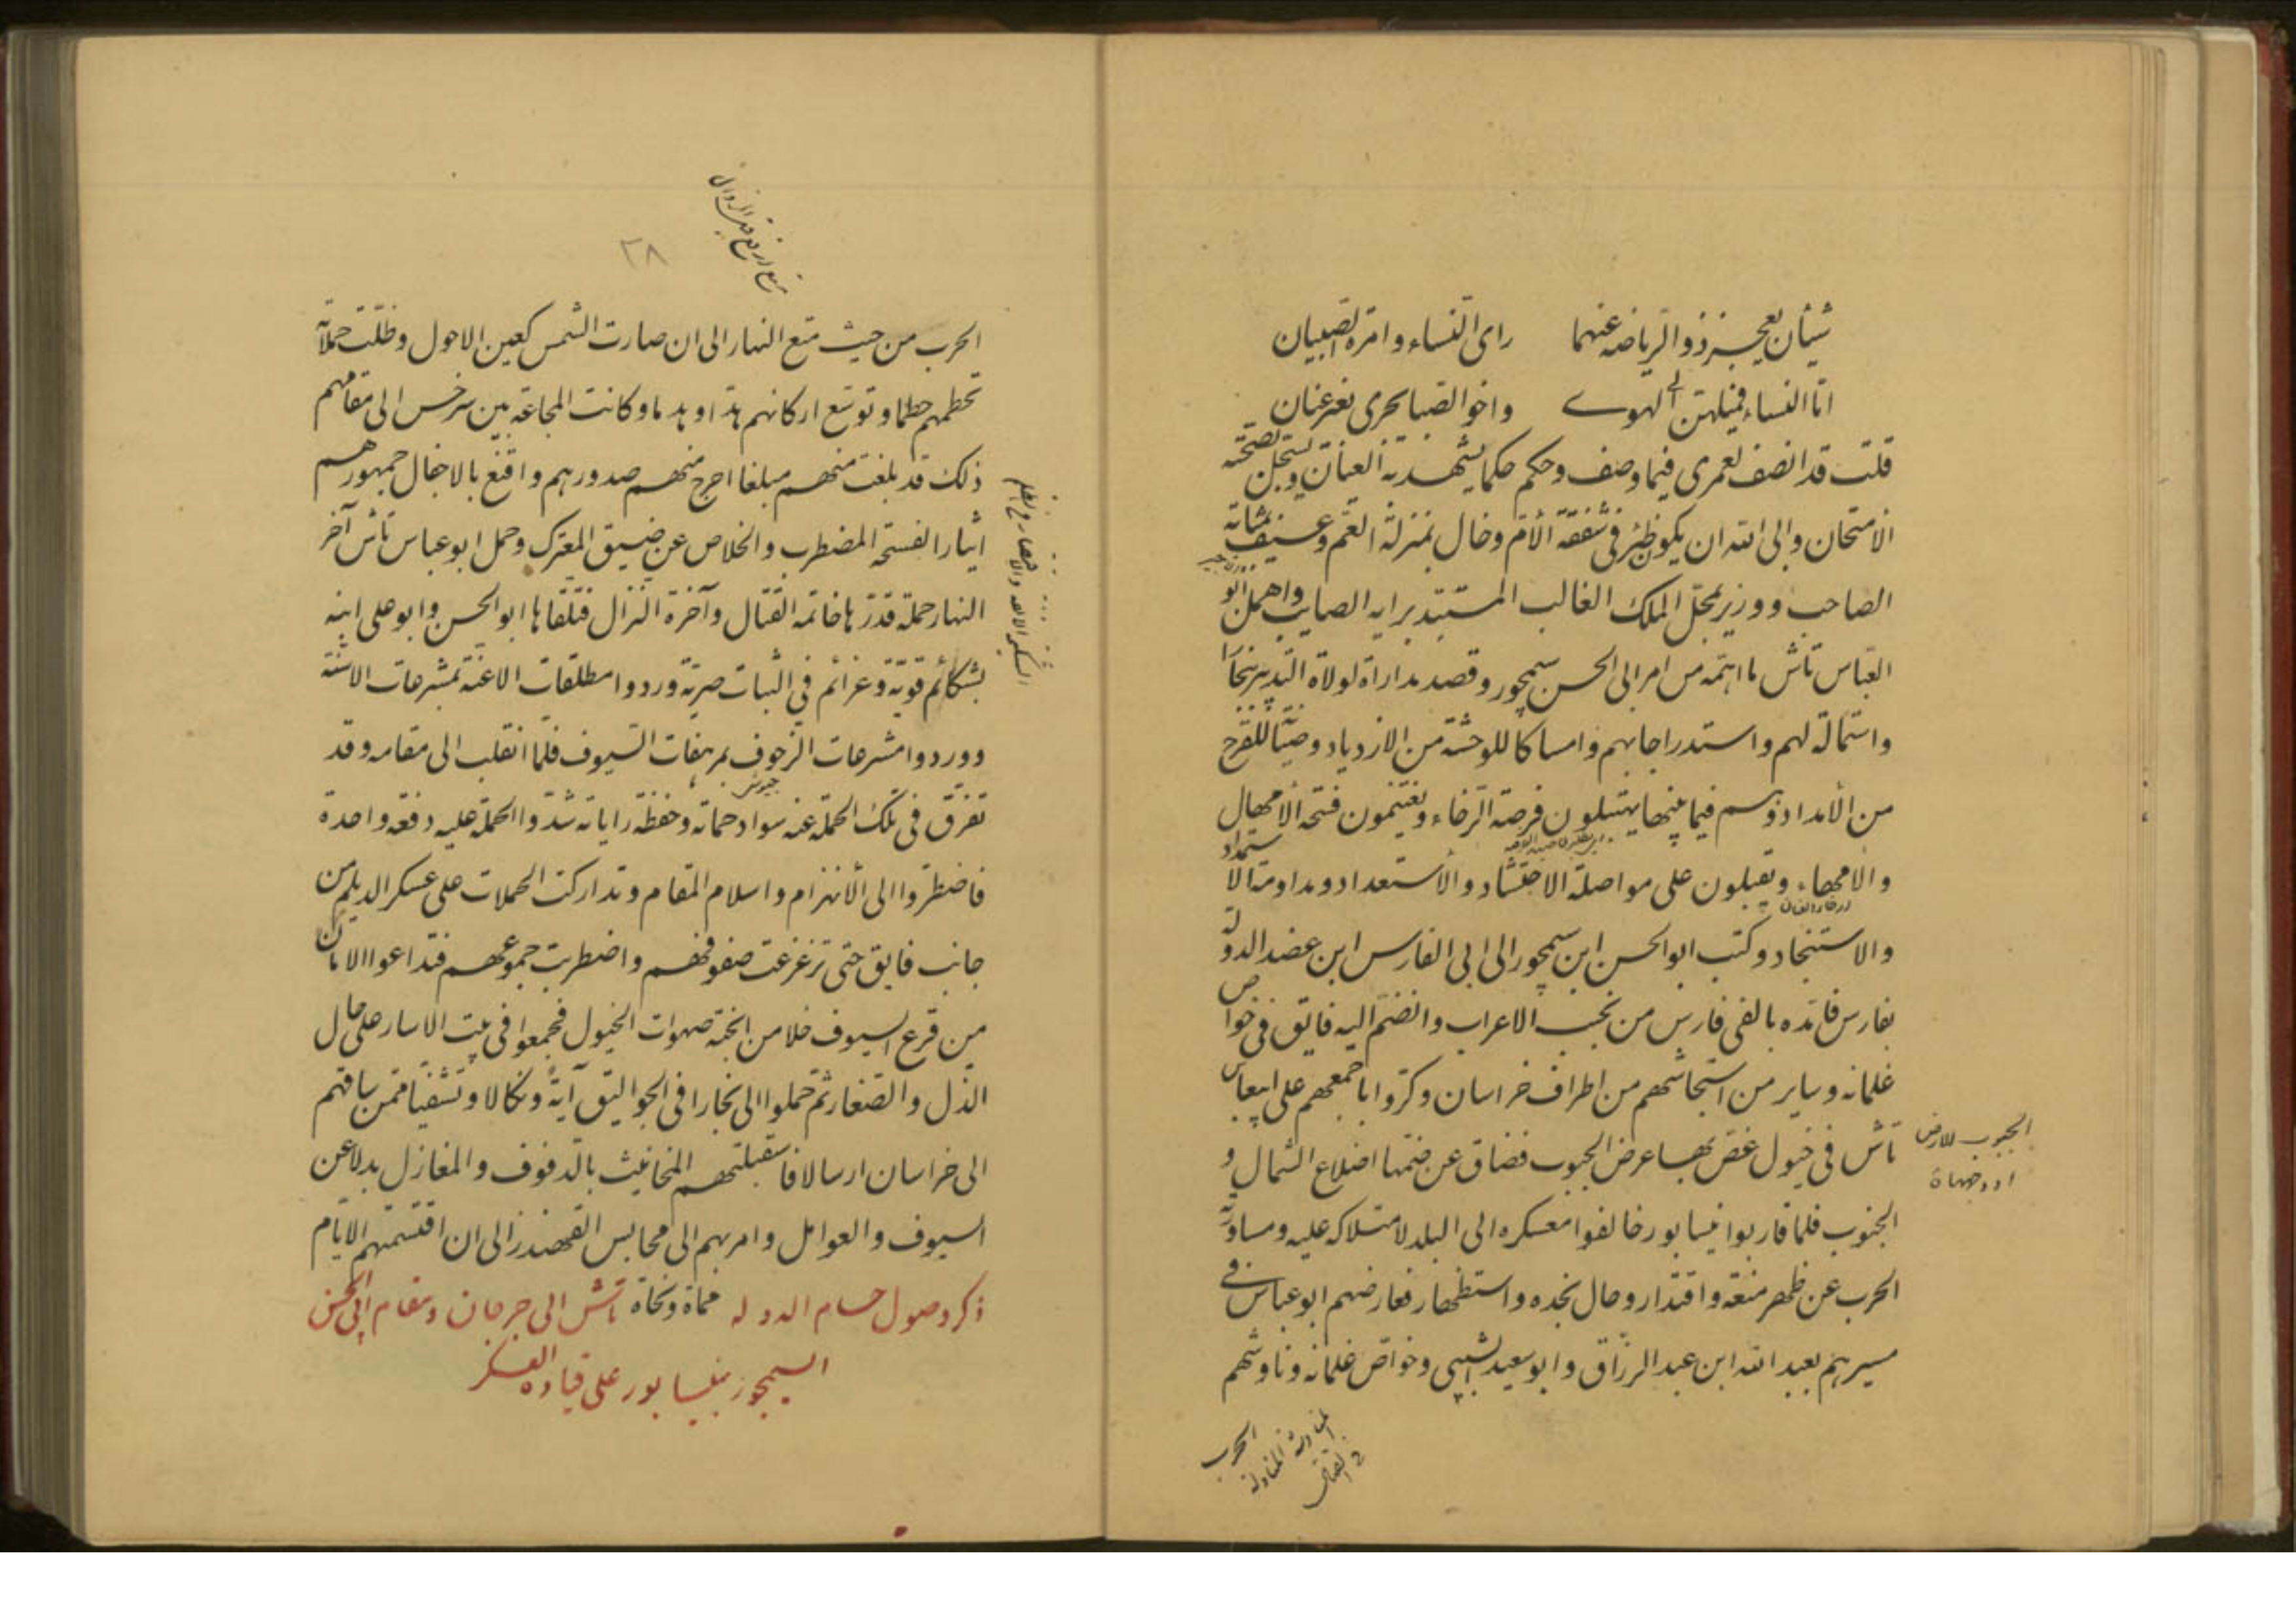 شيئان يعجز ذو الرياضه عنهما رای النساء وامرة الصبيان
اما النساء فميلهن الی الهوے واخو الصبا يجری بغير عنان
قلت قد انصف لعمری فيما وصف وحكم حكما يشهد به العيان ويسجل بصحته
الامتحان والی الله ان يكون ظئر فی شفقة الام وخال بمنزلة العم وعسيف بمثابة
الصاحب ووزير بمحل الملك الغالب المستبد برايه الصايب واهمل ابو
العباس تاش ما اهمه من امر ابی الحسن سيمجور وقصد مداراة لولاة التدبير ببخارا
واستمالة لهم واستدراجا بهم وامساكا للوحشة من الازدياد وصيتا للقرح
من الأمداد وهم فيما بينها يهتبلون فرصة الرخاء ويغتنمون فتحة الأمهال
والامهاء ويقبلون علی مواصلة الاحتشاد والأستعداد ومداومة الاستمداد
والاستنجاد وكتب ابو الحسن ابن سيمجور الی ابی الفارس ابن عضد الدولة
بفارس فامده بالفی فارس من نخب الاعراب وانضم اليه فايق فی خواص
غلمانه وساير من استجاشهم من اطراف خراسان وكروا باجمعهم علی ابی عباس
تاش فی خيول غص بها عرض الجبوب فضاق عن ضمها اضلاع الشمال و
الجنوب فلما قاربوا نيسابور خالفوا معسكره الی البلد لامتلاكه عليه ومساورته
الحرب عن ظهر منعة واقتدار وحال نجده واستظهار فعارضهم ابو عباس فی
مسيرهم بعبد الله ابن عبد الرزاق وابو سعيد الشيبی وخواص غلمانه وناوشهم
الجبوب للارض
او وجهها
الحرب
المناوشة المناولة
فی القتال
٢٨
الحرب من حيث متع النهار الی ان صارت الشمس كعين الاحول وظلت حملاته
تحطمهم حطما وتوسع اركانهم هدا وهدما وكانت المجاعة بين سرخس الی مقامهم
ذلك قد بلغت منهم مبلغا احرج منهم صدورهم واقنع بالاجفال جمهورهم
ايثارا لفسحة المضطرب والخلاص عن ضيق المعترك وحمل ابو عباس تاش آخر
النهار حملة قدرها خاتمة القتال وآخرة النزال فتلقاها ابو الحسن وابو علی ابنه
بشكائم قوية وعزائم فی الثبات صرية وردوا مطلقات الاعنة بمشرعات الاسنة
ووردوا مشرعات الزحوف بمرهفات السيوف فلما انقلب الی مقامه وقد
تفرق فی تلك الحملة عنه سواد حماته وحفظة راياته شدوا الحملة عليه دفعة واحدة
فاضطروا الی الأنهزام واسلام المقام وتداركت الحملات علی عسكر الديلم من
جانب فايق حتی تزعزعت صفوفهم واضطربت جموعهم فتداعوا الامان
من قرع السيوف خلا من انجته صهوات الخيول فجمعوا فی بيت الاسار علی حال
الذل والصغار ثم حملوا الی بخارا فی الجواليق آية ونكالا وتشفيا ممن ساقهم
الی خراسان ارسالا فاستقبلتهم المخانيث بالدفوف والمغازل بدلا عن
السيوف والعوامل وامر بهم الی محابس القهندز الی ان اقتسمتهم الايام
ذكر وصول حسام الدوله تاش الی جرجان ومقام ابی الحسن
السيمجور بنيسابور علی قيادة العسكر